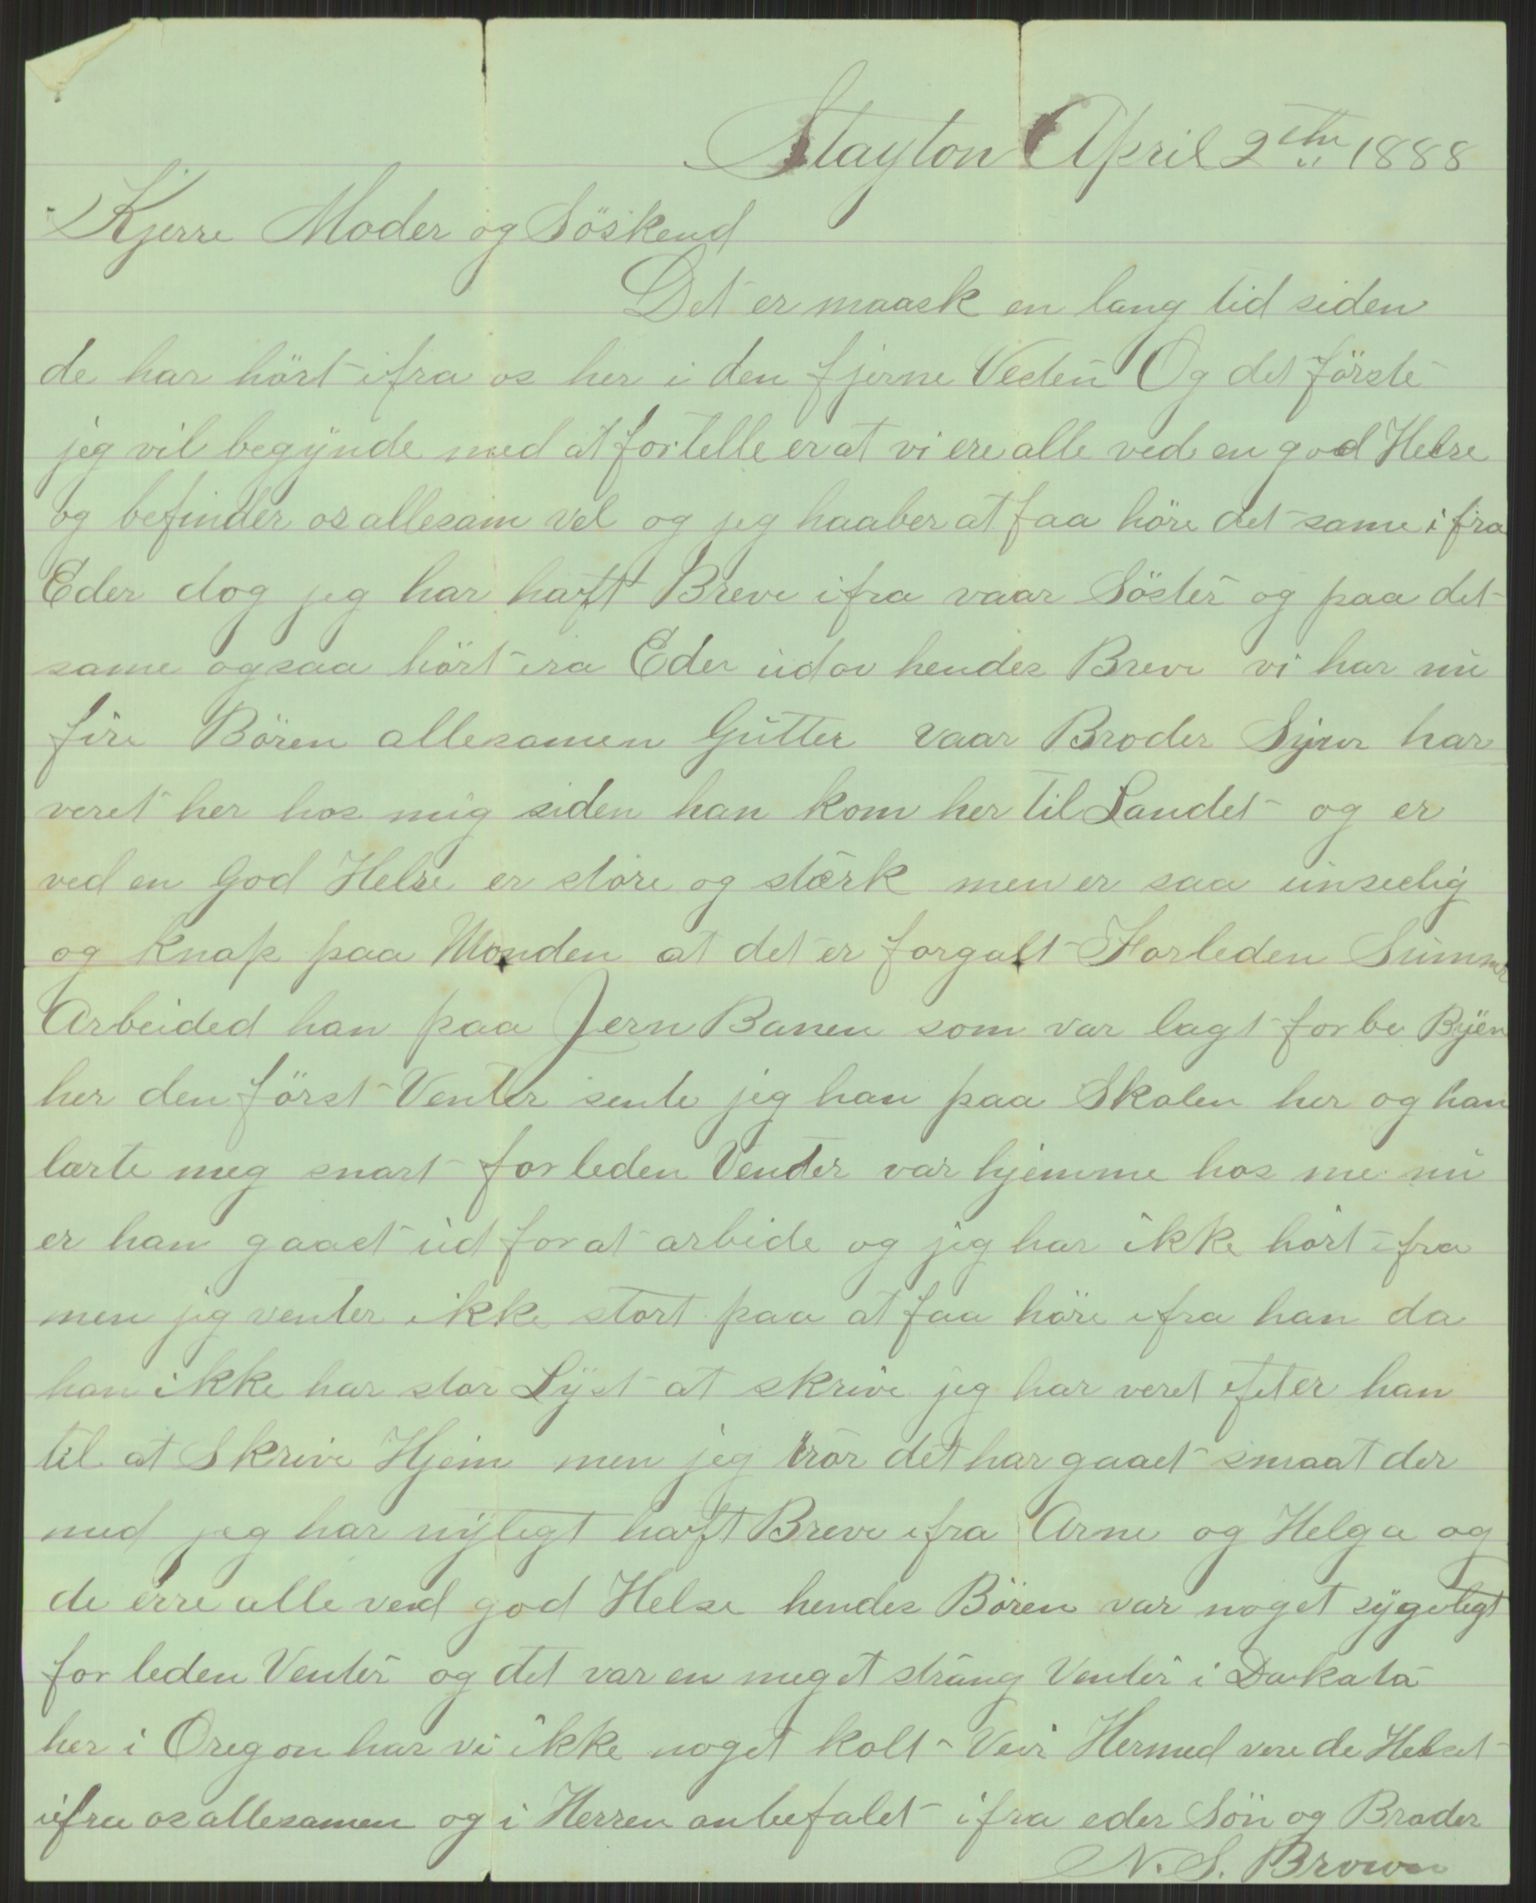 Stayton April 2th 1888
Kjerre Moder og Söskend
Det er maask en lang tid siden
de har hört ifra os her i den fjerne Vesten Og det förste
jeg vil begynde med at fortelle er at vi ere alle ved en god Helse
og befinder os allesam vel og jeg haaber at faa höre det same ifra
Eder dog jeg har haft Breve ifra vaar Söster og paa det
same ogsaa hört ira Eder udov hendes Breve vi har nu
fire Bören allesamen Gutter vaar Broder Sjur har
veret her hos mig siden han kom her til Landet og er
ved en God Helse er store og stærk men er saa unseelig
og knap paa Monden at det er forgalt Forleden Summer
Arbeided han paa Jern Banen som var lagt forbe Byen
her den först Venter sente jeg han paa Skolen her og han
lærte meg snart forleden Venter var hjemme hos me nu
er han gaaet ud for at arbide og jeg har ikke hört ifra
men jeg venter ikke stort paa at faa höre ifra han da
han ikke har stor Lyst at skrive jeg har veret efter han
til at Skrive Hjem men jeg tror det har gaaet smaat der
med jeg har nyligt haft Breve ifra Arne og Helga og
de erre alle ved god Helse hendes Bören var noget sygeligt
for leden Venter og det var en meget strang Venter i Dakota
her i Oregon har vi ikke noget kolt Veir Hermed vere de Helset
ifra os allesamen og i Herren anbefalet ifra eder Sön og Broder
N. S. Brown